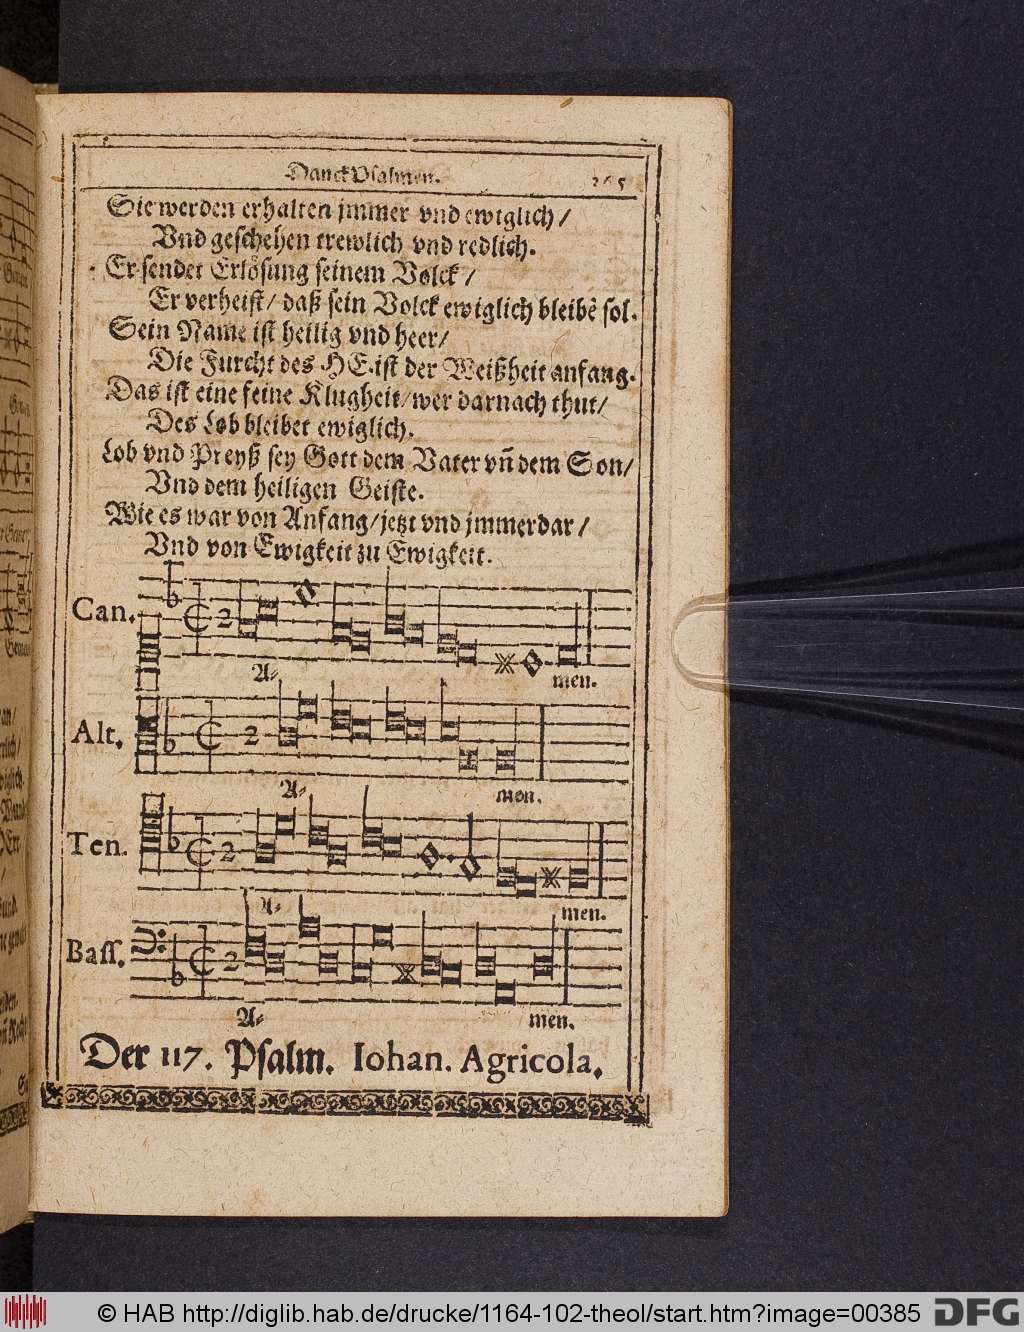 Danck Psalmen. 265
Sie werden erhalten jmmer vnd ewiglich/
Vnd geschehen trewlich vnd redlich.
Er sendet Erlösung seinem Volck/
Er verheist/ daß sein Volck ewiglich bleibẽ sol.
Sein Name ist heilig vnd heer/
Die Furcht des HE. ist der Weißheit anfang.
Das ist eine feine Klugheit/ wer darnach thut/
Des Lob bleibet ewiglich.
Lob vnd Preyß sey Gott dem Vater vñ dem Son/
Vnd dem heiligen Geiste.
Wie es war von Anfang/ jetzt vnd jmmerdar/
Vnd von Ewigkeit zu Ewigkeit.
Can. 2
A- men.
Alt. 2
A- men.
Ten. 2
A- men.
Bass. 2
A- men.
Der 117. Psalm. Iohan. Agricola.
© HAB http://diglib.hab.de/drucke/1164-102-theol/start.htm?image=00385 DFG